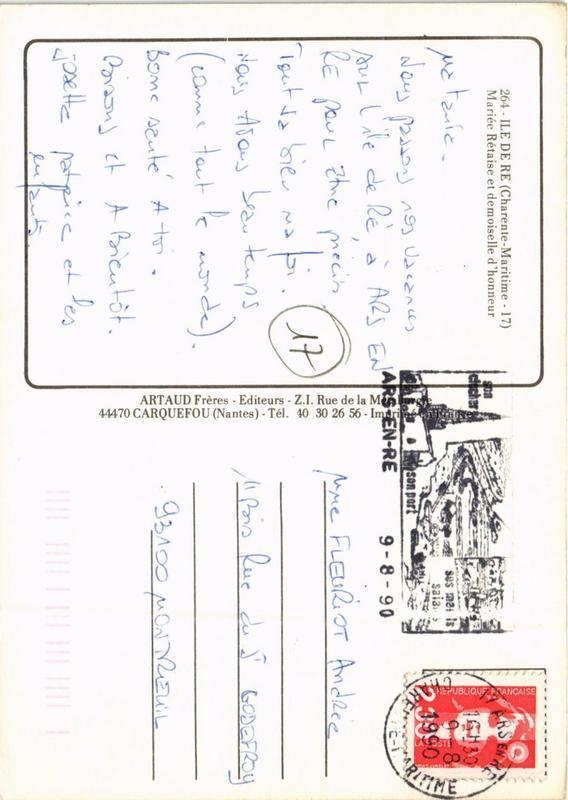 264 - ILE DE RE (Charente-Maritime - 17)
Mariée Rétaise et demoiselle d'honneur
Nous passons nos vacances
sur l'île de Ré, à ARS EN
RE pour être précis.
Tout va bien ma foi.
Nous avons beau temps
(comme tout le monde).
Bonne santé à toi.
Baisers et A Bientôt.
Josette Patrice et les
enfants
17
ARTAUD Frères - Editeurs - Z.I. Rue de la
44470 CARQUEFOU (Nantes) - Tél. 40 30 26 56 -
ARS-EN-RE 9-8-90
son
clocher
son port
ses marais
salants
17 ARS EN RE
16H30
9-8
1990
CHARENTE-MARITIME
REPUBLIQUE FRANÇAISE
2,30
LA POSTE
Mme FLEURIOT Andrée
11 Bois Rue du Dr GODEFROY
93100 MONTREUIL